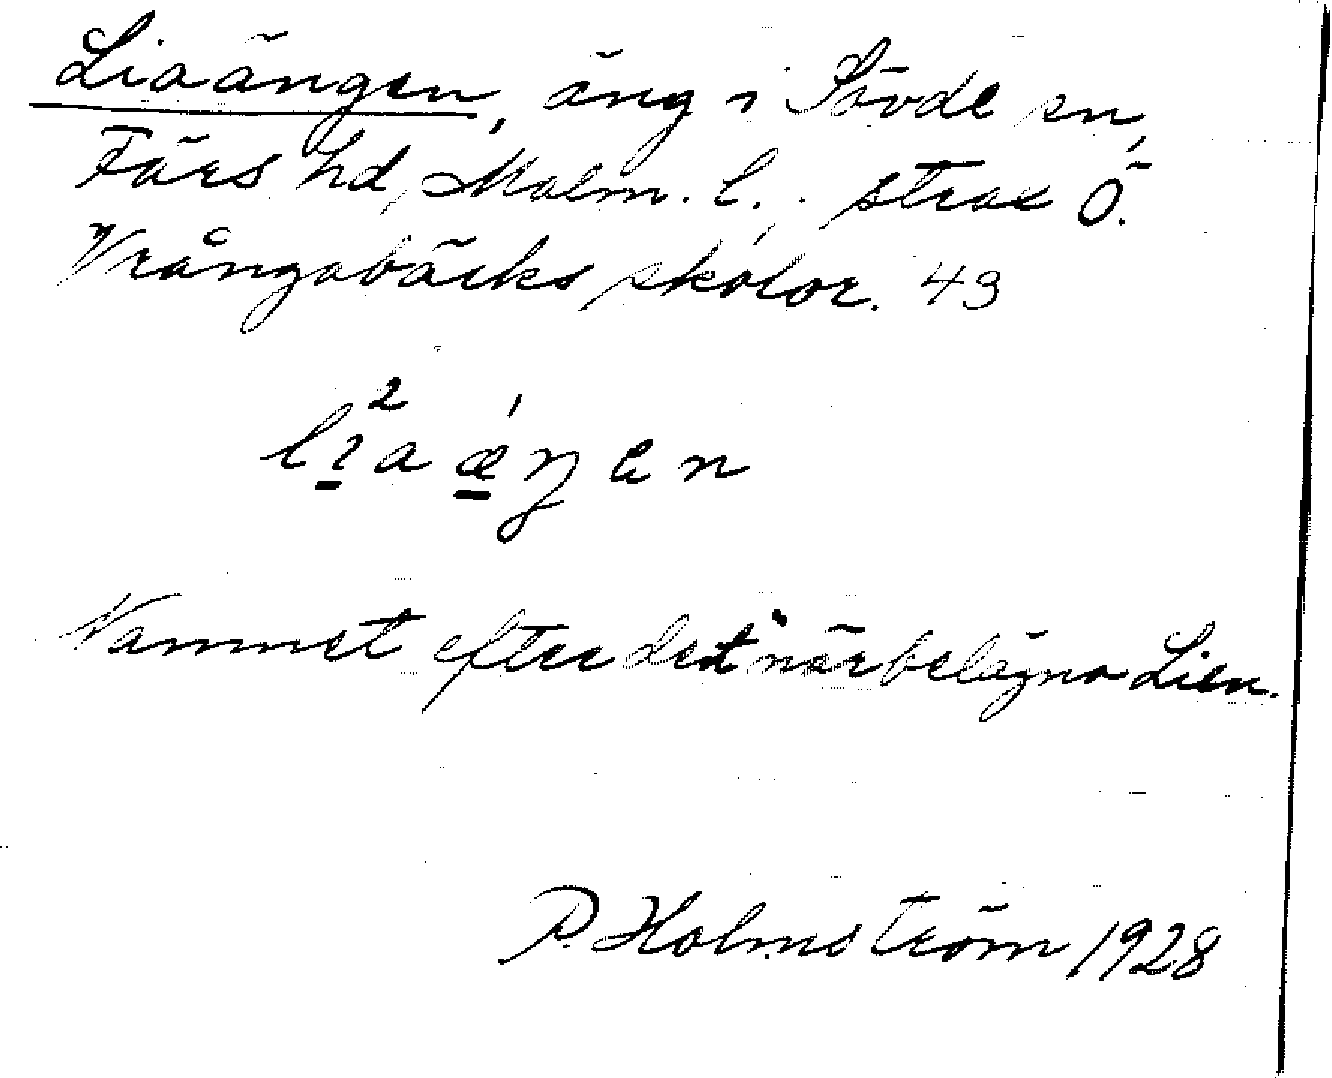 Liaängen, äng i Sövde sn,
Färs hd, Malm. l., strax Ö.
Vrångabäcks skolor. 43
li²a ǽŋen
Namnet efter det närbelägna Lien.
P. Holmström 1928